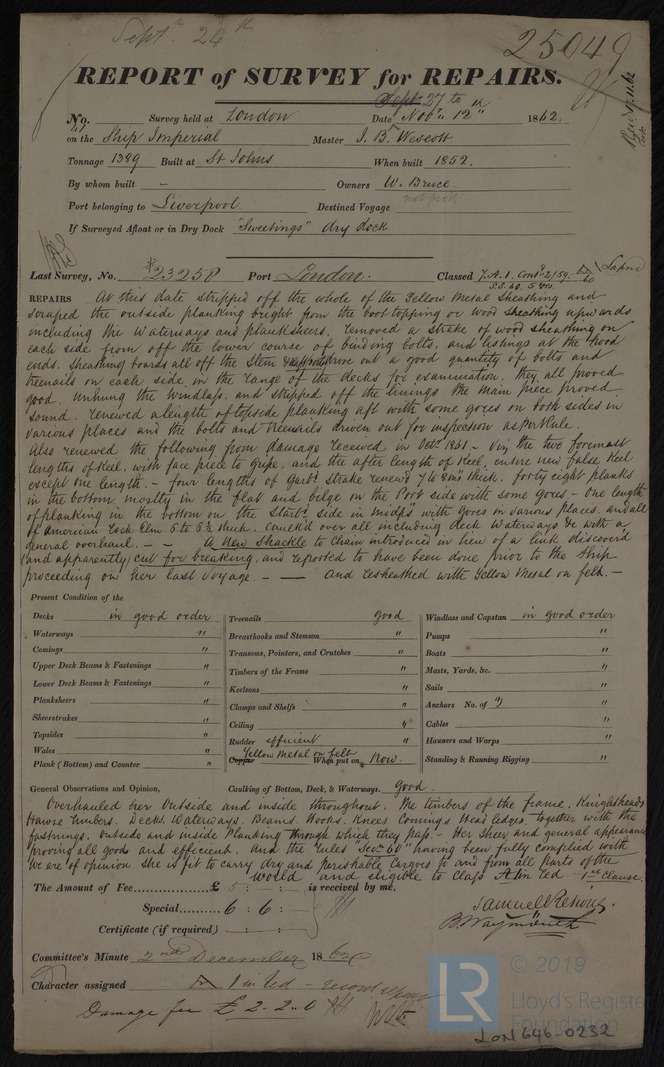 Sept. 24th
25049
REPORT of SURVEY for REPAIRS.
Sept. 27 to
No. Survey held at London Date Novr. 12th 1862.
on the Ship Imperial Master J. B. Wescott
Tonnage 1389 Built at St Johns When built 1852.
By whom built - Owners W. Bruce
Port belonging to Liverpool Destined Voyage
If Surveyed Afloat or in Dry Dock "Sweetings" dry dock
Last Survey, No. 23258 Port London. Classed 7. A. 1. Contd 2/59. Lapsd
S.S. 60, 5 yrs.
REPAIRS At this date stripped off the whole of the Yellow Metal Sheathing and
scraped the outside planking bright from the boot topping or wood sheathing upwards
including the Waterways and planksheers. removed a strake of wood sheathing on
each side from off the lower course of binding bolts, and listings at the hood
ends. Sheathing boards all off the Stem drove out a good quantity of bolts and
treenails on each side, in the range of the decks for examination. they all proved
good. Unhung the Windlass, and stripped off the linings the main piece proved
sound. renewed a length of topside planking aft with some gores on both sides in
various places and the bolts and treenails driven out for inspection as per Rule.
Also renewed the following from damage received in Octr. 1861 - viz the two foremast
lengths of Keel, with face piece to Gripe, and the after length of Keel, entire new false Keel
except one length. - four lengths of Garbd. strake renewd 7 to 8 ins thick. forty eight planks
in the bottom mostly in the flat and bilge on the Port side with some gores - One length
of planking in the bottom on the Starbd. side in midps with gores in various places. and all
of American Rock Elm 5 to 5½ thick. Caulk'd over all including deck Waterways &c with a
general overhaul. - - A New Shackle to chain introduced in lieu of a link discover'd
(and apparently) cut for breaking, and reported to have been done prior to the Ship
proceeding on her last voyage. - - And resheathed with Yellow Metal on felt. -
Present Condition of the
Decks in good order
Waterways "
Comings "
Upper Deck Beams & Fastenings "
Lower Deck Beams & Fastenings "
Planksheers "
Sheerstrakes "
Topsides "
Wales "
Plank (Bottom) and Counter "
Treenails good
Breasthooks and Stemson "
Transoms, Pointers, and Crutches "
Timbers of the Frame "
Keelsons "
Clamps and Shelfs "
Ceiling "
Rudder efficient "
Yellow Metal on felt
Copper When put on Now.
Windlass and Capstan in good order
Pumps "
Boats "
Masts, Yards, &c. "
Sails "
Anchors No. of 3 "
Cables "
Hawsers and Warps "
Standing & Running Rigging "
General Observations and Opinion, Caulking of Bottom, Deck, & Waterways. Good.
Overhauled her Outside and inside throughout. The timbers of the frame. Knightheads
Hawse timbers. Decks. Waterways. Beams. Hooks. Knees Comings Head ledges. together with the
fastnings. Outside and inside Planking through which they pass. - Her Sheer and general appearance
proving all good and efficient. And the Rules "Sec. 60" having been fully complied with
We are of opinion She is fit to carry dry and perishable Cargoes to and from all Parts of the
World and eligible to class A 1 in red - 1st Clause.
The Amount of Fee £ 5 : - : - is received by me,
Special 6 : 6 : -
Certificate (if required) - : - : -
Samuel
B. Waymouth
Committee's Minute 2nd December 1862
Character assigned A 1 in red - record repairs
Damage fee £ 2..2..0
LR
© 2019
Lloyd's Register
Foundation
LON646-0232